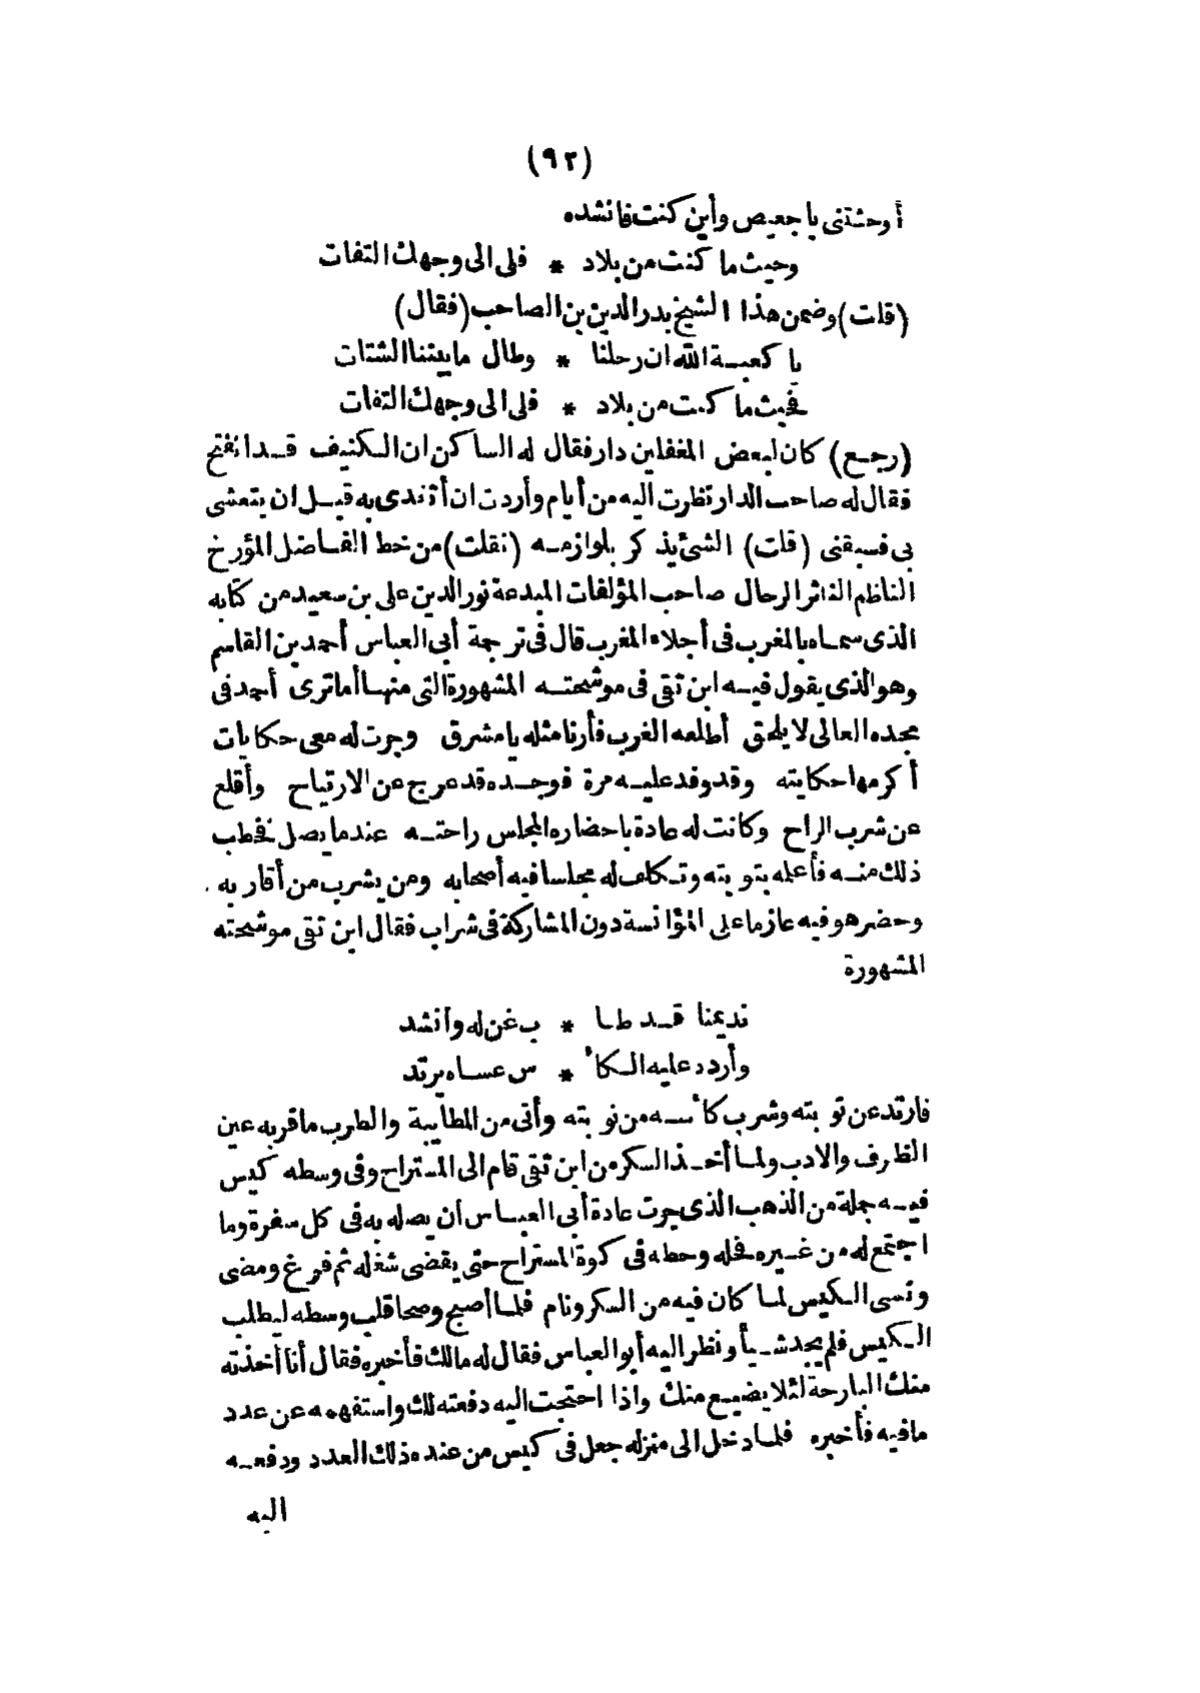 (٩٢)
أوحشتنى يا جعيص وأين كنت فانشده
وحيث ما كنت من بلاد * فلى الى وجهك التفات
(قلت) وضمن هذا الشيخ بدر الدين بن الصاحب (فقال)
يا كعبة الله ان رحلنا * وطال ما بيننا الشتات
فحيث ما كنت من بلاد * فلى الى وجهك التفات
(رجع) كان لبعض المغفلين دار فقال له الساكن ان الكنيف قد انفتح
فقال له صاحب الدار نظرت اليه من أيام وأردت ان أتغدى به قبل ان يتعشى
بى فسبقنى (قلت) الشئ يذكر بلوازمه (نقلت) من خط الفاضل المؤرخ
الناظم الناثر الرحال صاحب المؤلفات المبدعة نور الدين على بن سعيد من كتابه
الذى سماه بالمغرب فى أجلاء المغرب قال فى ترجمة أبى العباس أحمد بن القاسم
وهو الذى يقول فيه ابن تقى فى موشحته المشهورة التى منها أما ترى أحمد فى
مجده العالى لا يلحق أطلعه الغرب فأرنا مثله يا مشرق وجرت له معى حكايات
أكرمها حكايته وقد وفد عليه مرة فوجده قد عرج عن الارتياح وأقلع
عن شرب الراح وكانت له عادة باحضاره المجلس راحته عندما يصل فخطب
ذلك منه فأعلمه بتوبته وتكلف له مجلسا فيه أصحابه ومن يشرب من أقاربه
وحضر هو فيه عازما على المؤانسة دون المشاركة فى شراب فقال ابن تقى موشحته
المشهورة
نديمنا قد طا * ب غن له وأنشد
وأردد عليه الكأ * س عساه يرتد
فارتد عن توبته وشرب كأسه من نوبته وأتى من المطايبة والطرب ما قر به عين
الظرف والادب ولما أخذ السكر من ابن تقى قام الى المستراح وفى وسطه كيس
فيه جملة من الذهب الذى جرت عادة أبى العباس أن يصله به فى كل سفرة وما
اجتمع له من غيره فحله وحطه فى كوة المستراح حتى يقضى شغله ثم فرغ ومضى
ونسى الكيس لما كان فيه من السكر ونام فلما أصبح وصحا قلب وسطه ليطلب
الكيس فلم يجد شيأ ونظر اليه أبو العباس فقال له مالك فأخبره فقال أنا أخذته
منك البارحة لئلا يضيع منك واذا احتجت اليه دفعته لك واستفهمه عن عدد
ما فيه فأخبره فلما دخل الى منزله جعل فى كيس من عنده ذلك العدد ودفعه
اليه